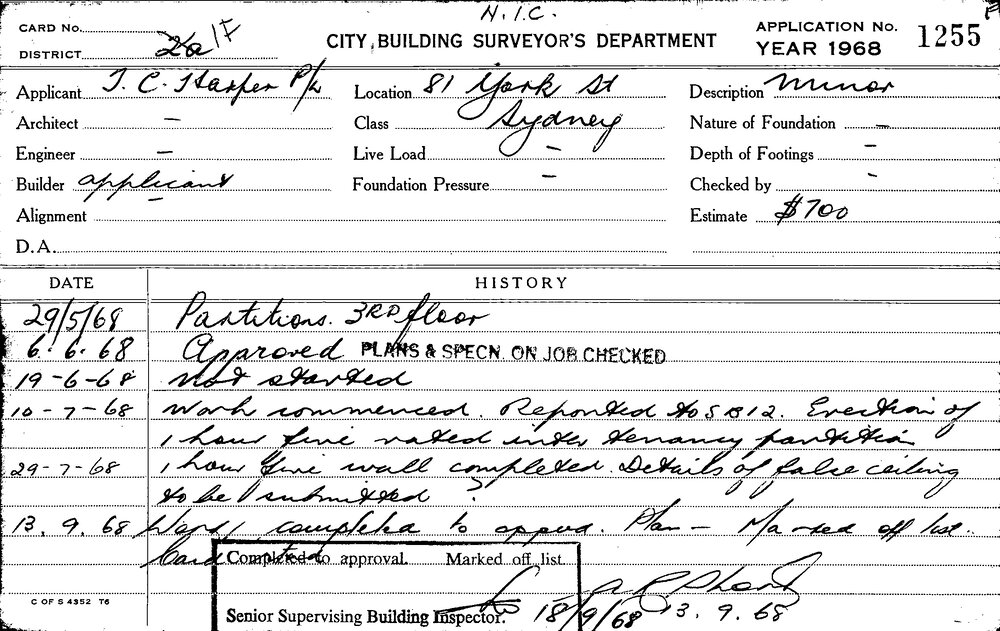 N.I.C.
CARD No.
DISTRICT 2a/F
CITY BUILDING SURVEYOR'S DEPARTMENT
APPLICATION No. 1255
YEAR 1968
Applicant T. C. Harper P/L Location 81 York St Description Minor
Architect — Class Sydney Nature of Foundation —
Engineer — Live Load — Depth of Footings -
Builder applicant Foundation Pressure — Checked by -
Alignment — Estimate $700
D.A.
DATE HISTORY
29/5/68 Partitions. 3RD floor
6. 6. 68 Approved PLANS & SPECN. ON JOB CHECKED
19-6-68 not started
10-7-68 Work commenced. Reported to SBI2. Erection of
1 hour fire rated inter tenancy partition
29-7-68 1 hour fire wall completed. Details of false ceiling
to be submitted ?
13. 9. 68 Work completed to approd. Plan — Marked off list.
Card
Completed to approval. Marked off list.
Senior Supervising Building Inspector. 18/9/68 13. 9. 68
C OF S 4352 T6